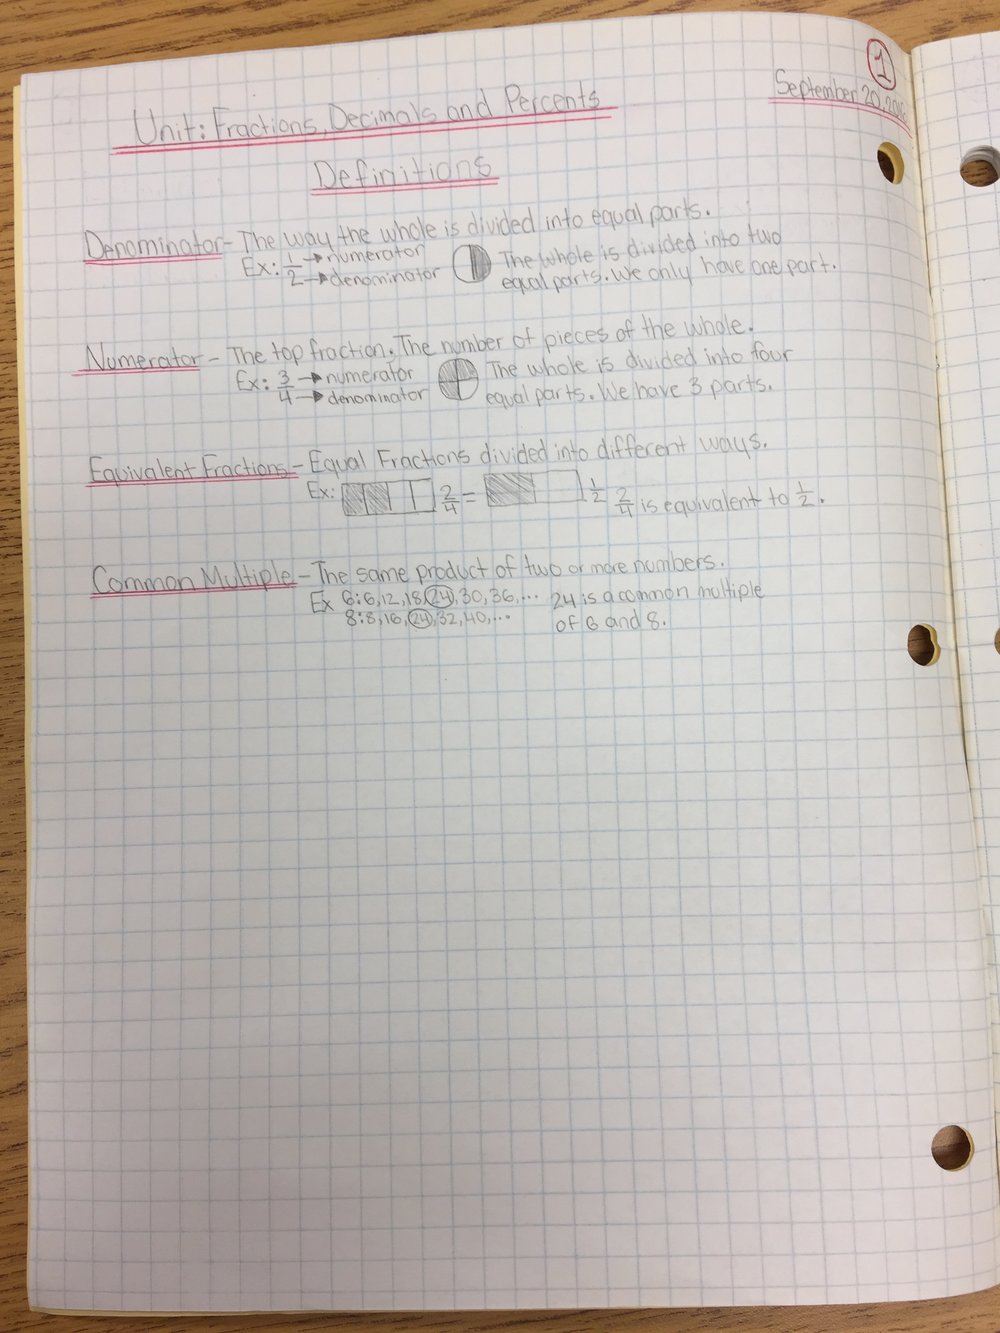 1
September 20, 
Unit: Fractions, Decimals and Percents
Definitions
Denominator- The way the whole is divided into equal parts.
Ex: 1/2 → numerator → denominator The whole is divided into two
equal parts. We only have one part.
Numerator - The top fraction. The number of pieces of the whole.
Ex: 3/4 → numerator → denominator The whole is divided into four
equal parts. We have 3 parts.
Equivalent Fractions - Equal Fractions divided into different ways.
Ex: 2/4 = 1/2 2/4 is equivalent to 1/2.
Common Multiple - The same product of two or more numbers.
Ex 6:6,12,18,24,30,36,... 24 is a common multiple
8:8,16,24,32,40,... of 6 and 8.